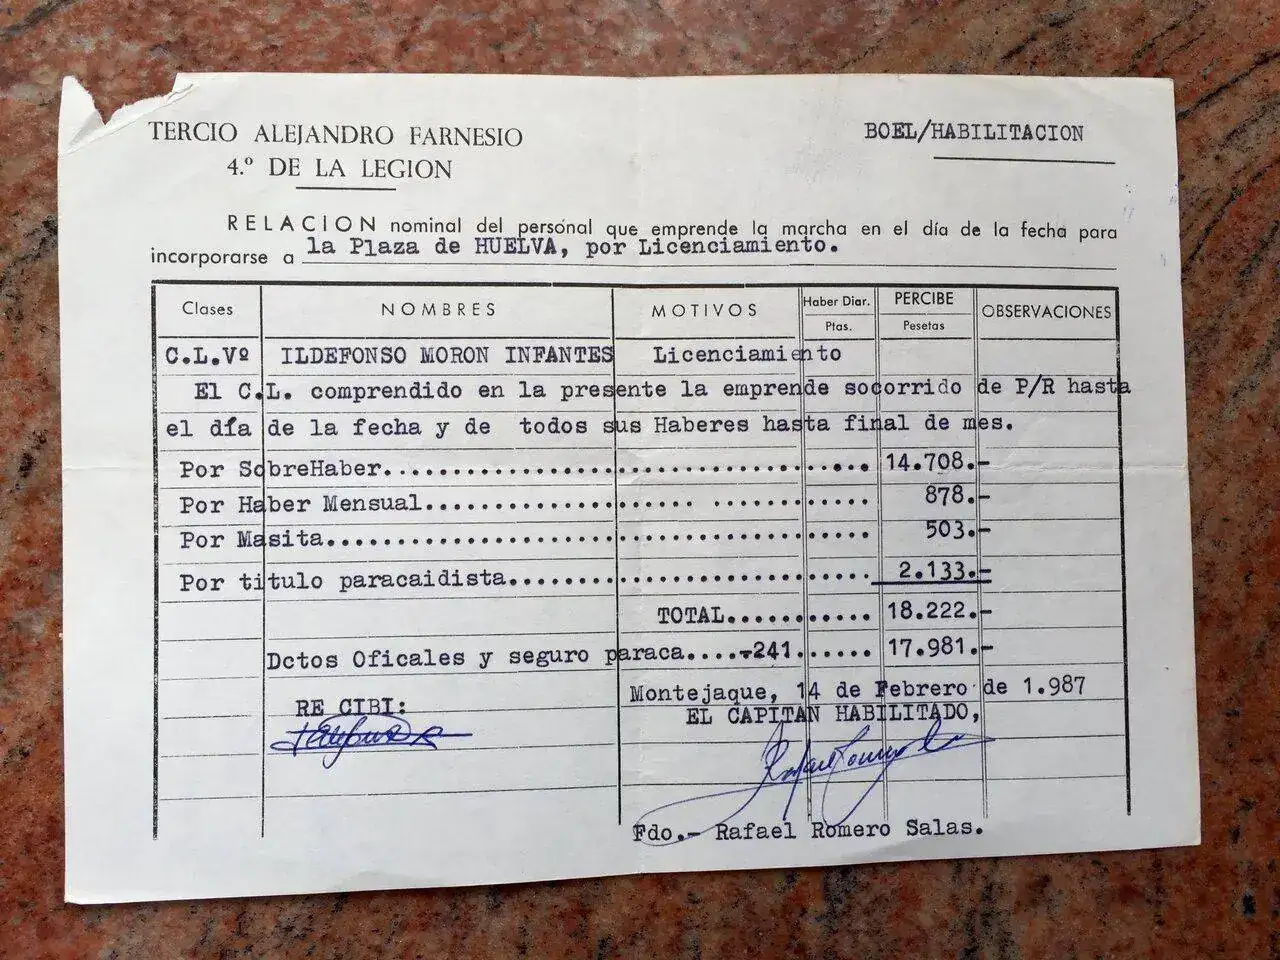 TERCIO ALEJANDRO FARNESIO
4.º DE LA LEGION
BOEL/HABILITACION
RELACION nominal del personal que emprende la marcha en el día de la fecha para
incorporarse a la Plaza de HUELVA, por Licenciamiento.
Clases NOMBRES MOTIVOS Haber Diar. Ptas. PERCIBE Pesetas OBSERVACIONES
C.L.Vº ILDEFONSO MORON INFANTES Licenciamiento
El C.L. comprendido en la presente la emprende socorrido de P/R hasta
el día de la fecha y de todos sus Haberes hasta final de mes.
Por SobreHaber.......................................... 14.708.-
Por Haber Mensual.................... .............. 878.-
Por Masita.............................................. 503.-
Por titulo paracaidista.............................. 2.133.-
TOTAL........... 18.222.-
Dctos Oficales y seguro paraca....-241....... 17.981.-
Montejaque, 14 de Febrero de 1.987
RE CIBI:
EL CAPITAN HABILITADO,
Fdo.- Rafael Romero Salas.